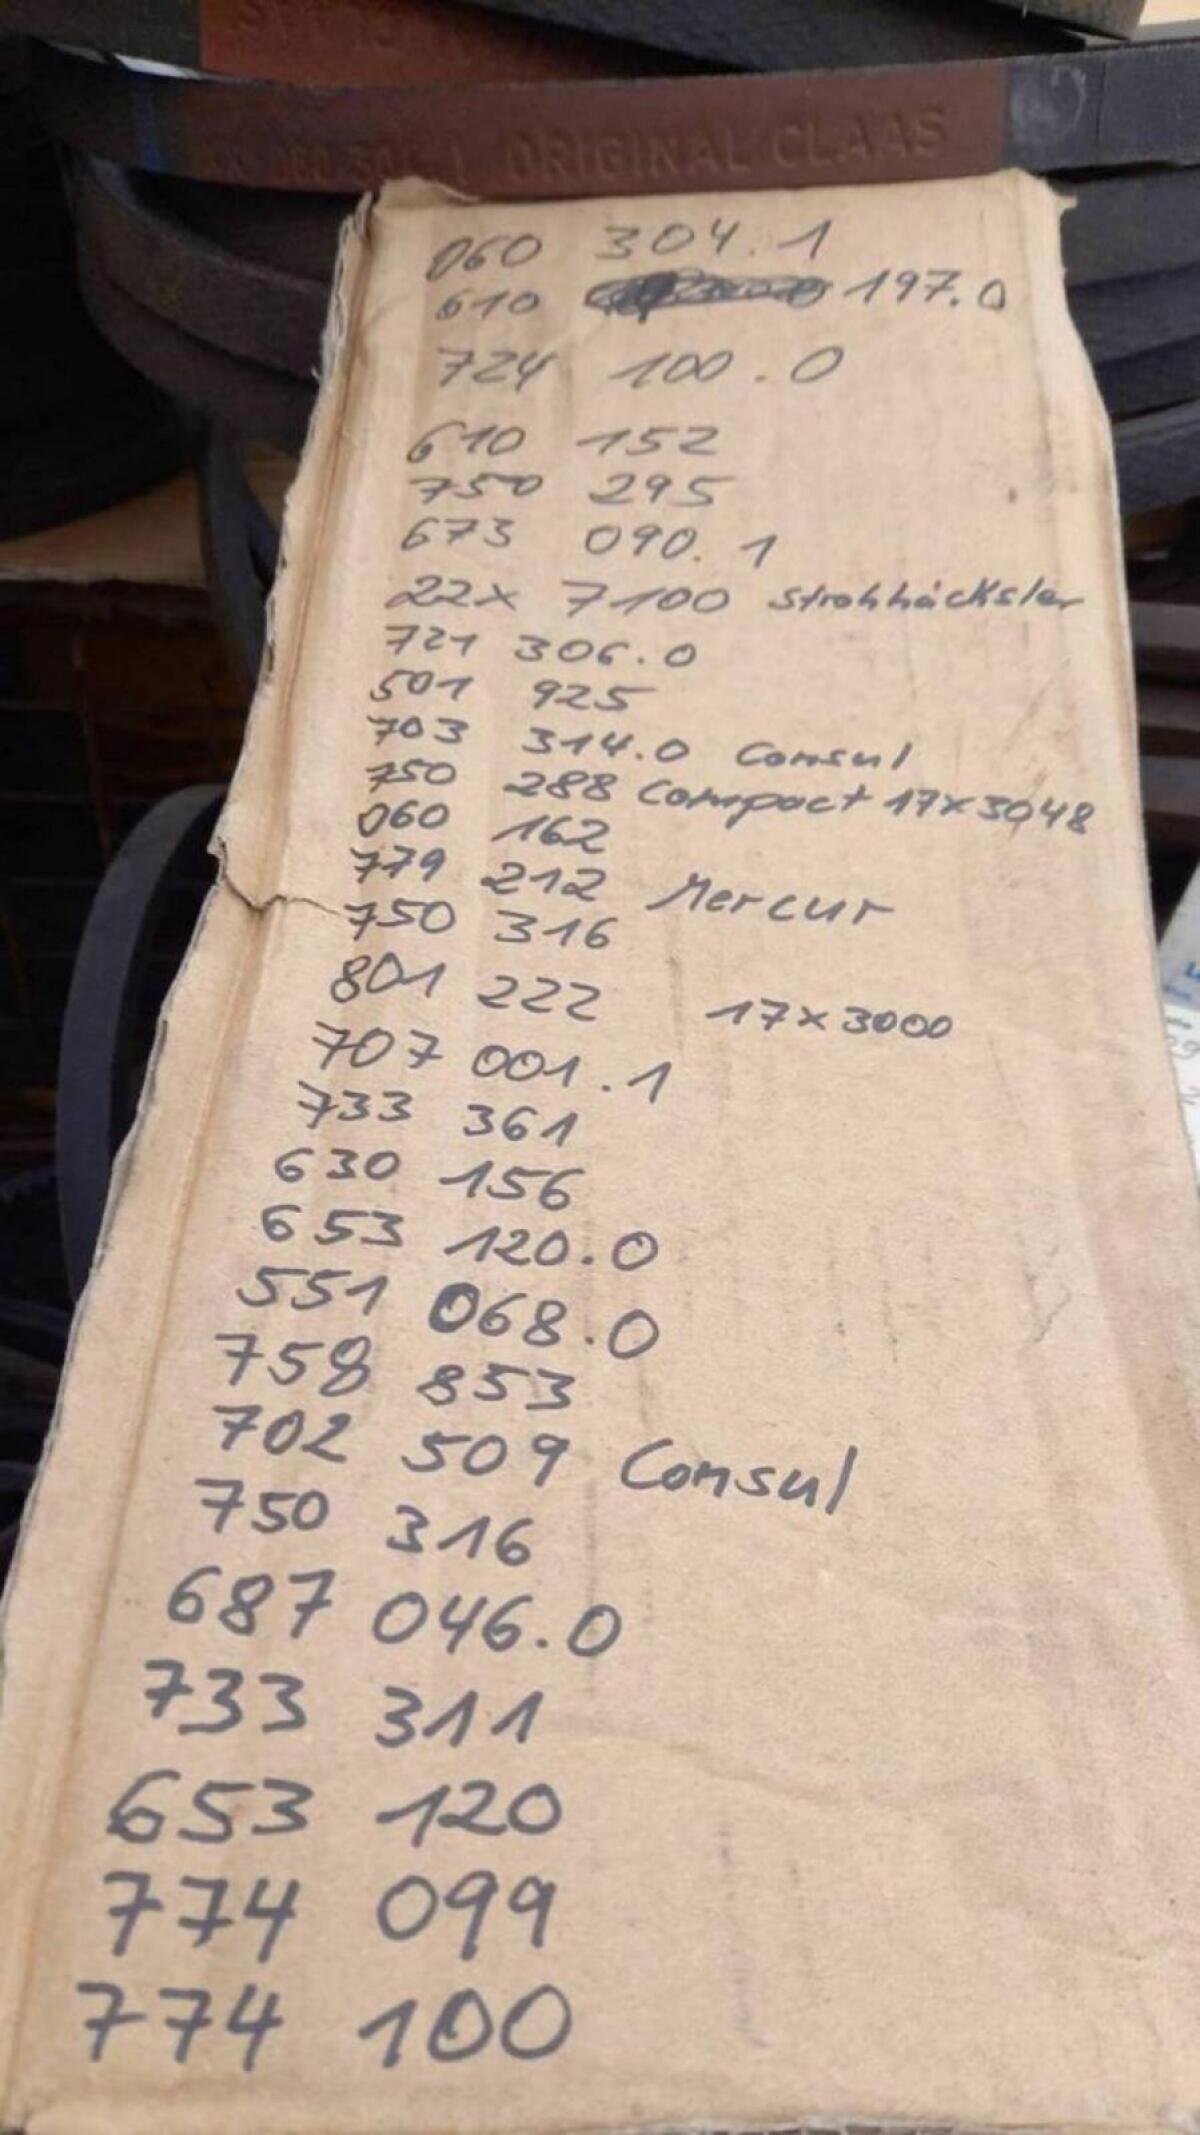 060 304.1 ORIGINAL CLAAS
060 304.1
610 197.0
724 100.0
610 152
750 295
673 090.1
22x 7100 Strohhäcksler
721 306.0
501 925
703 314.0 Consul
750 288 Compact 17x3048
060 162
779 212 Mercur
750 316
801 222 17x3000
707 001.1
733 361
630 156
653 120.0
551 068.0
758 853
702 509 Consul
750 316
687 046.0
733 311
653 120
774 099
774 100